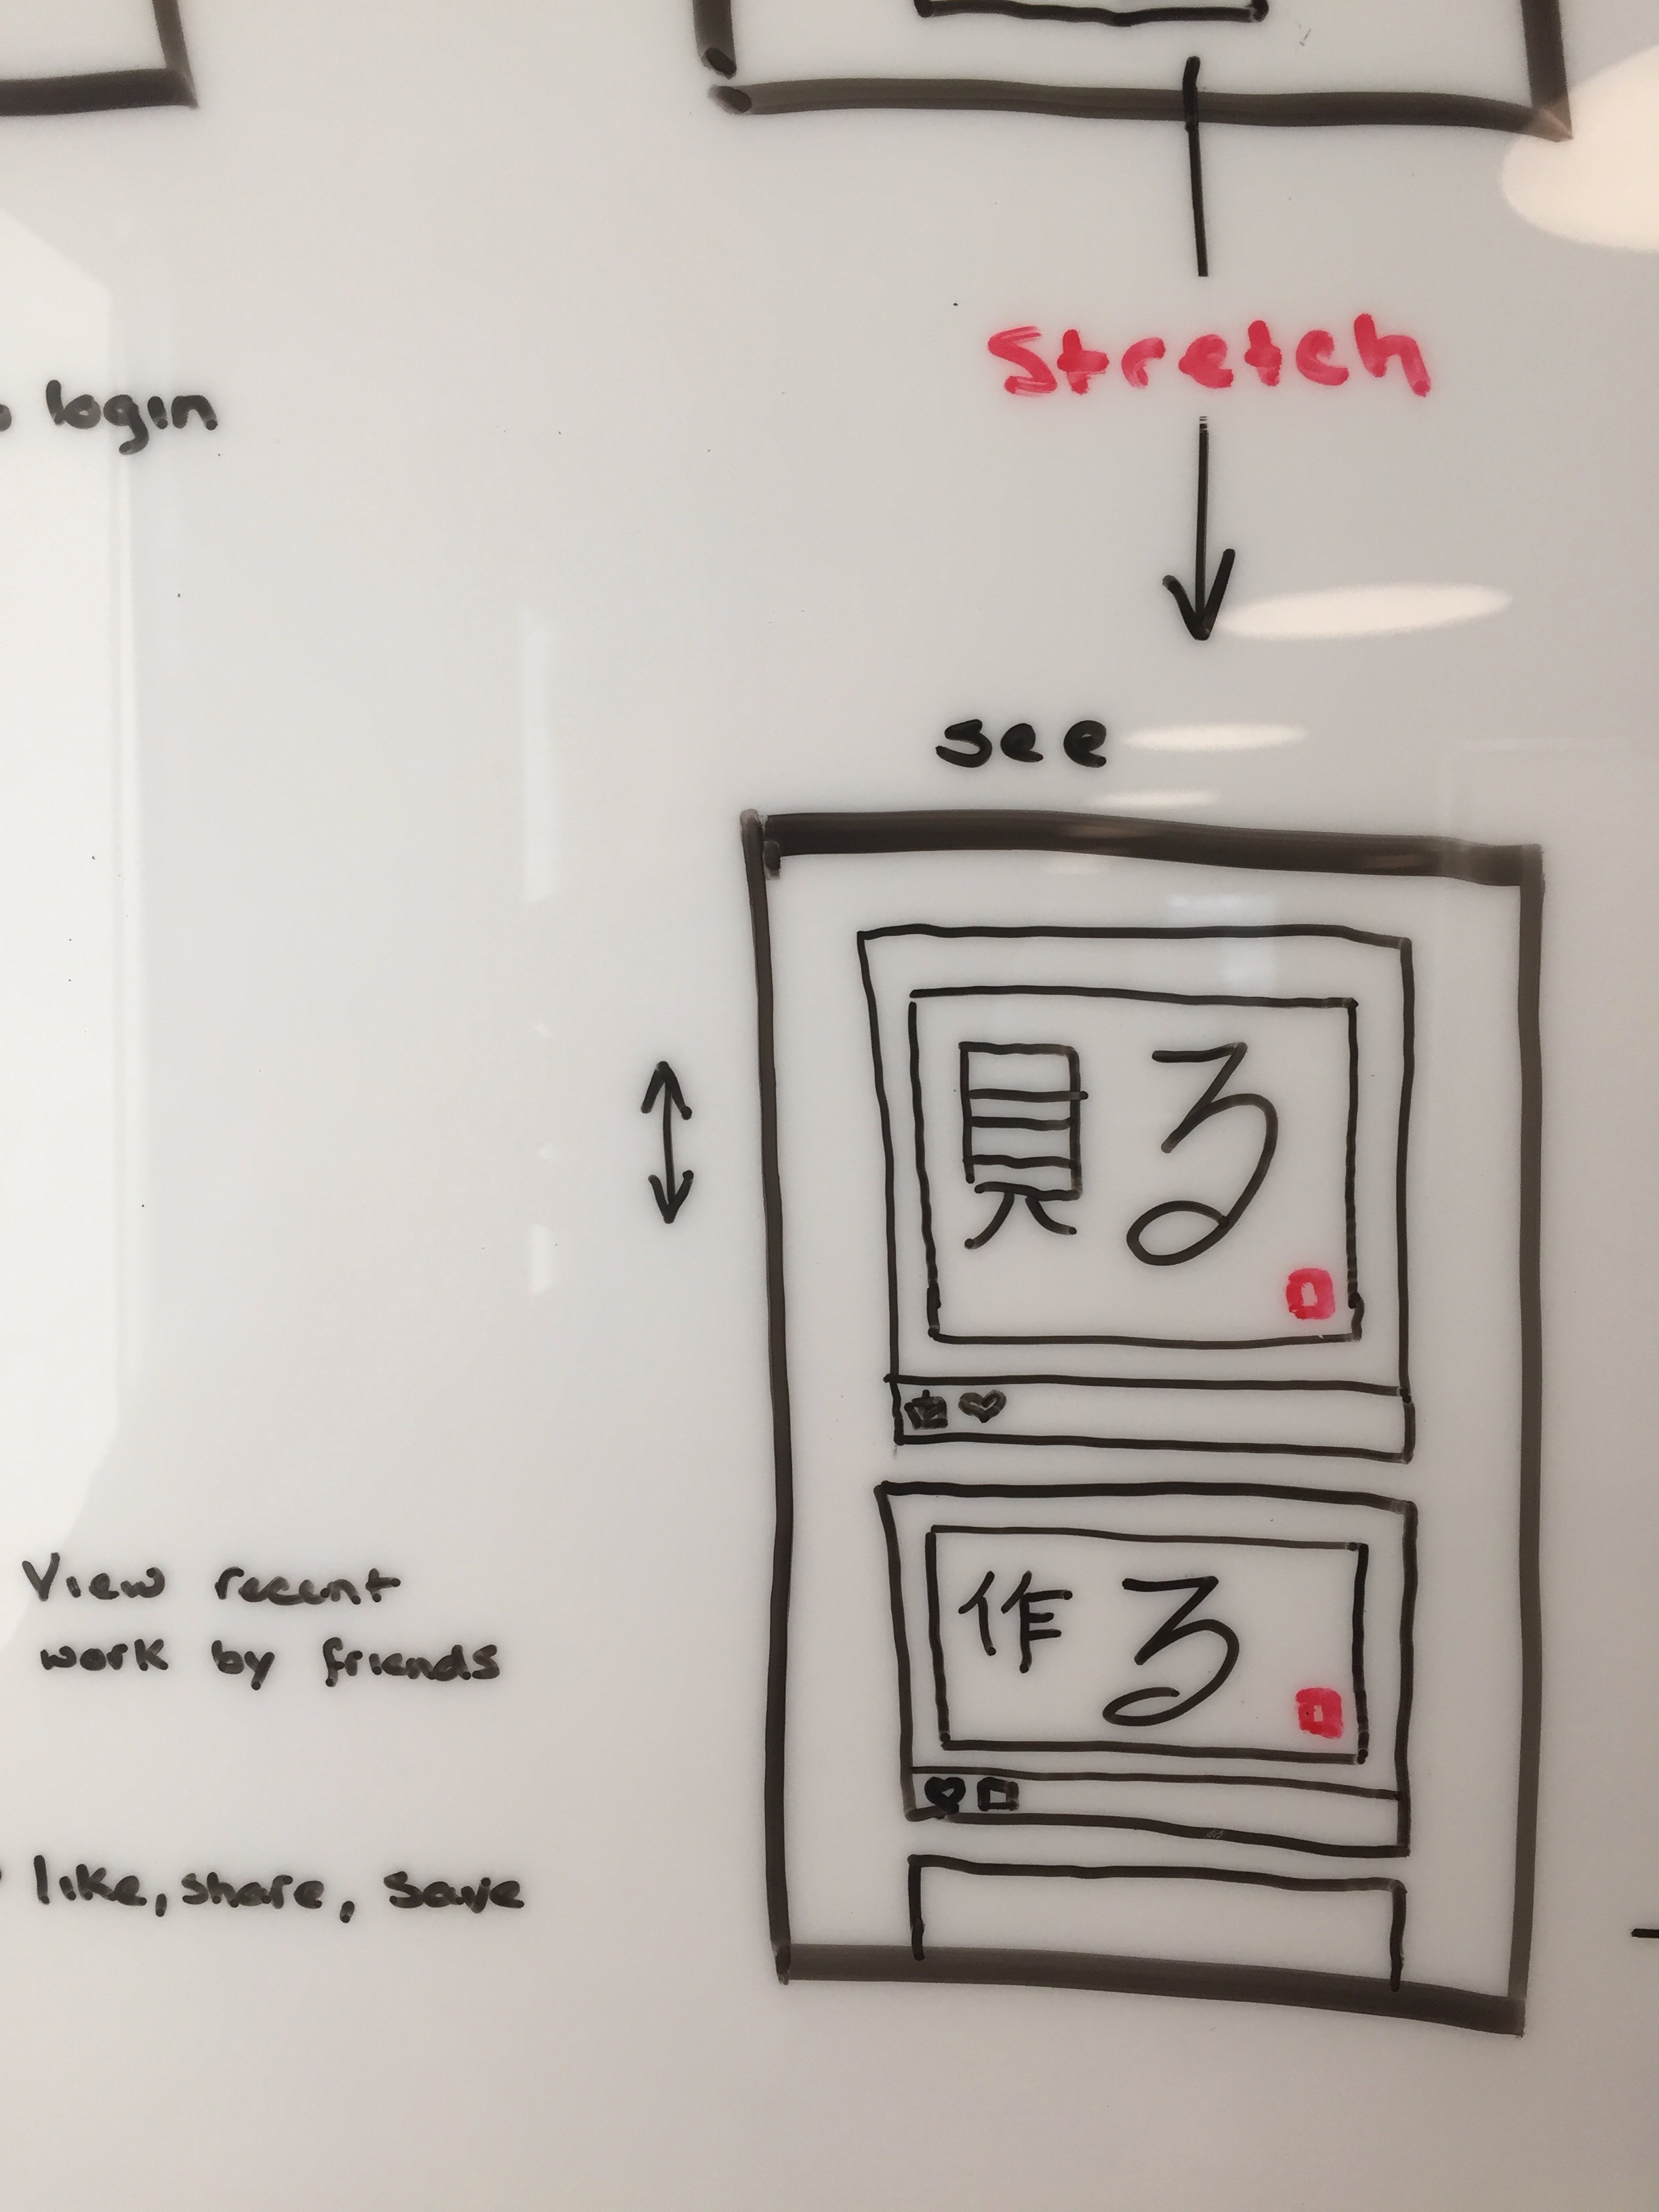 Stretch
login
see
見る
作る
View recent
work by friends
like, share, save